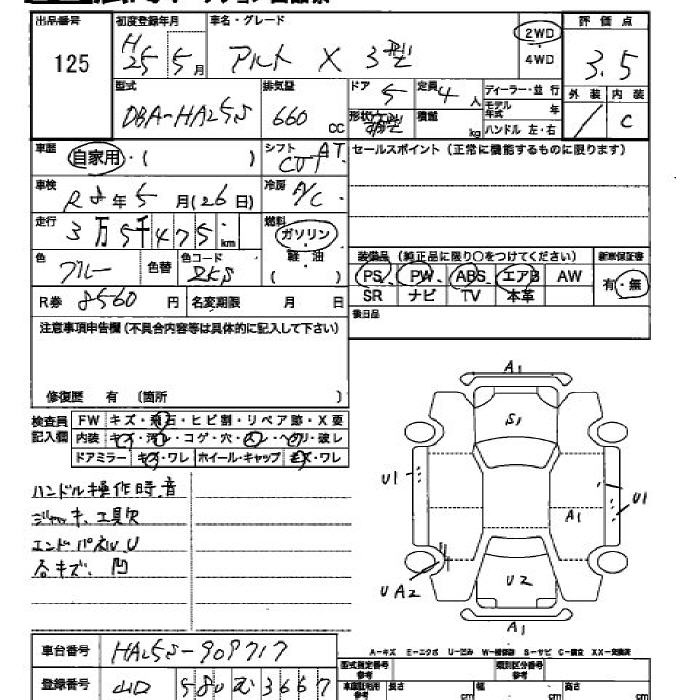 出品番号 初度登録年月 車名・グレード 評価点
125 H25年5月 アルト X 3型 2WD 4WD 3.5
型式 排気量 ドア 5 定員 4人 ディーラー・並行 外装 内装
DBA-HA25S 660 CC 形状 積載 kg モデル年式 年 / C
ハンドル 左・右
車歴 自家用・( ) シフト AT CVT セールスポイント(正常に機能するものに限ります)
車検 R8年5月(26日) 冷房 A/C
走行 3万5千475km 燃料 ガソリン
軽・油
( )
色 ブルー 色替 色コード ZKS
装備品(純正品に限り○をつけてください) 新車保証書
PS PW ABS エアB AW 有・無
SR ナビ TV 本革
R券 8560円 名変期限 月 日
後日品
注意事項申告欄(不具合内容等は具体的に記入して下さい)
修復歴 有 (箇所 )
検査員記入欄
FW キズ・飛石・ヒビ割・リペア跡・X要
内装 キズ・汚レ・コゲ・穴・スレ・ヘタリ・破レ
ドアミラー キズ・ワレ ホイール・キャップ キズ・ワレ
ハンドル操作時、音
ジャッキ、工具欠
エンドパネル U
各キズ、凹
A1
S1
U1
U1
A1
UA2
U2
A1
A-キズ E-エクボ U-凹み W-補修跡 S-サビ C-腐食 XX-交換済
車台番号 HA25S-909717
型式指定番号 参考 類別区分番号 参考
登録番号 580 む 3667
車庫証明用 参考 長さ cm 幅 cm 高さ cm